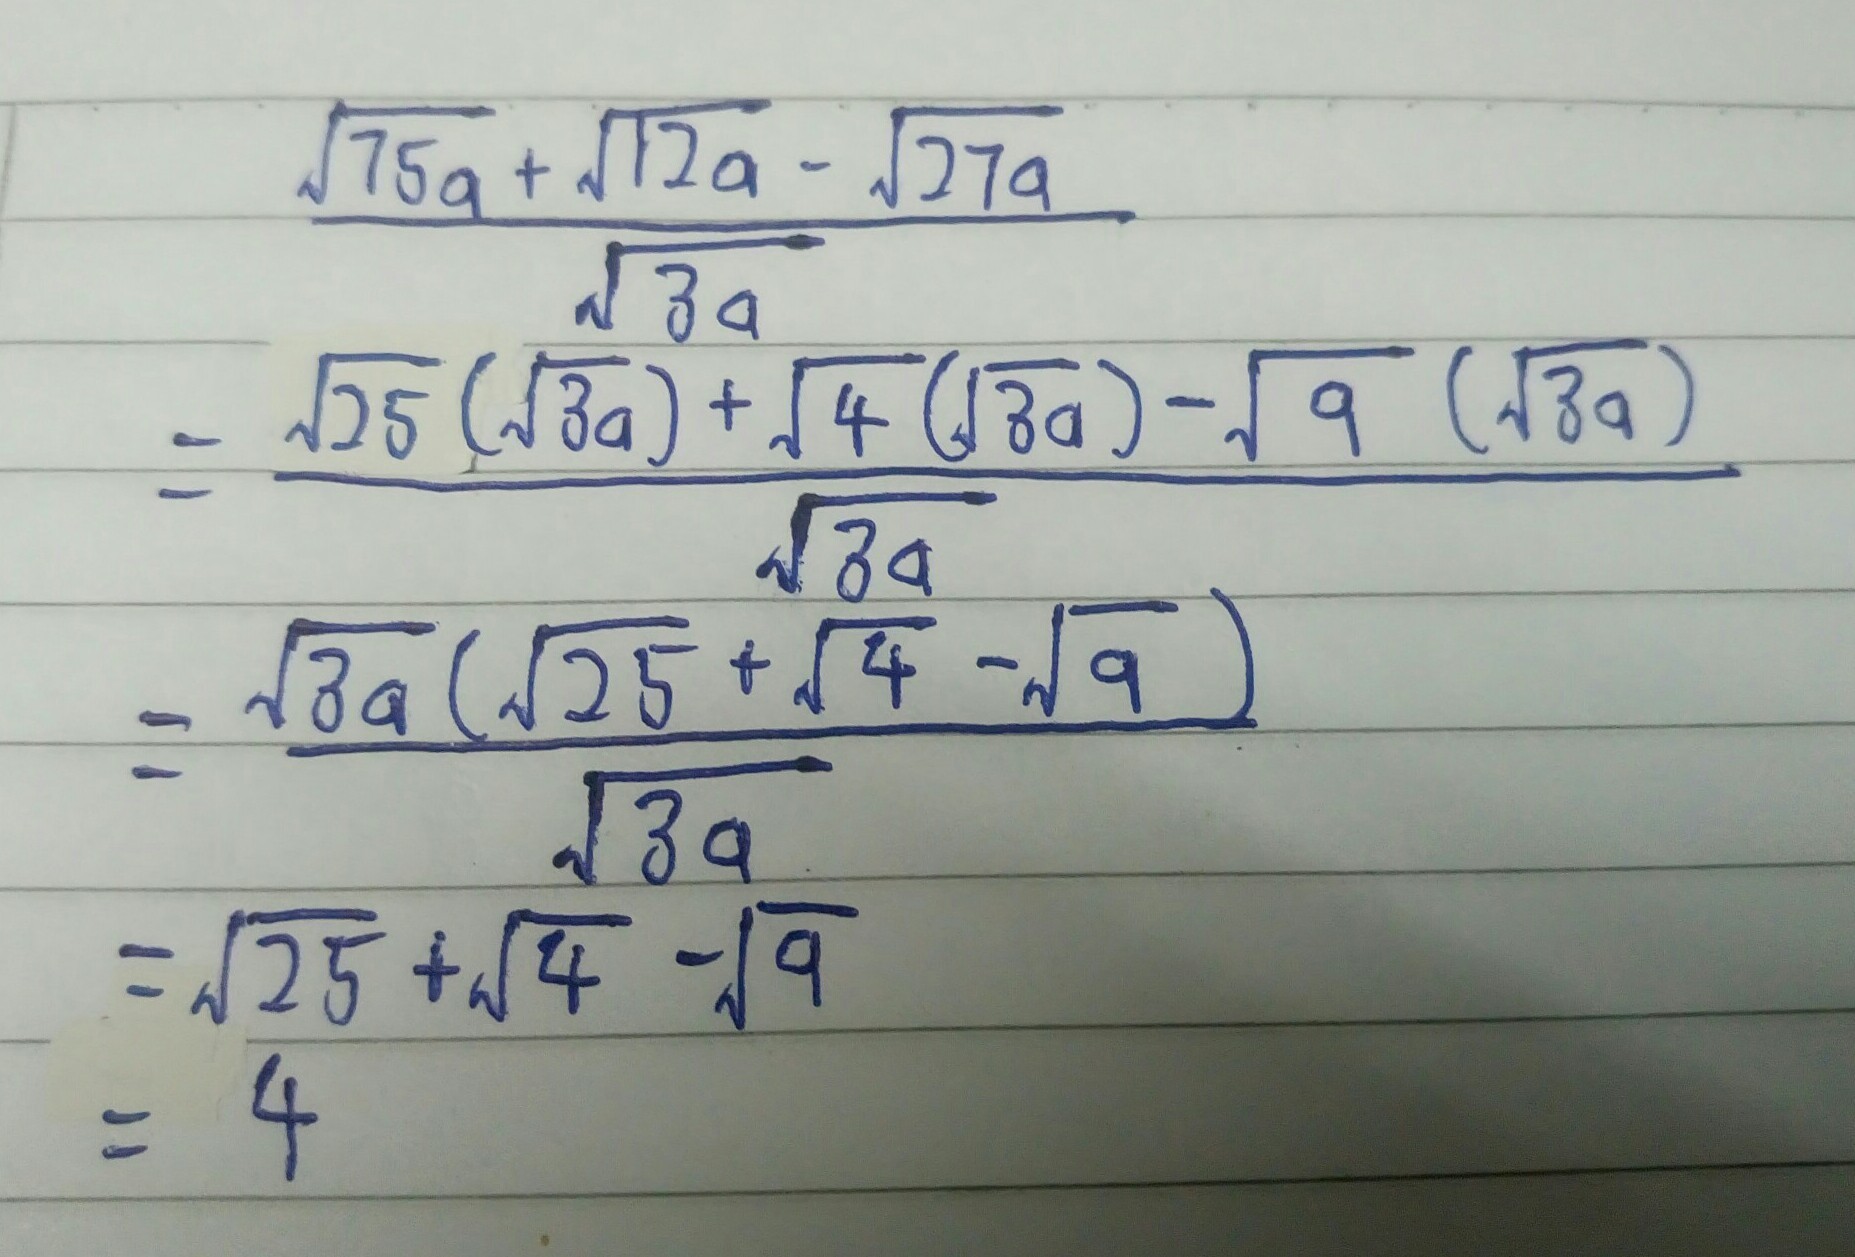 √75a + √12a - √27a
√3a
= √25 (√3a) + √4 (√3a) - √9 (√3a)
√3a
= √3a (√25 + √4 - √9)
√3a
= √25 + √4 - √9
= 4